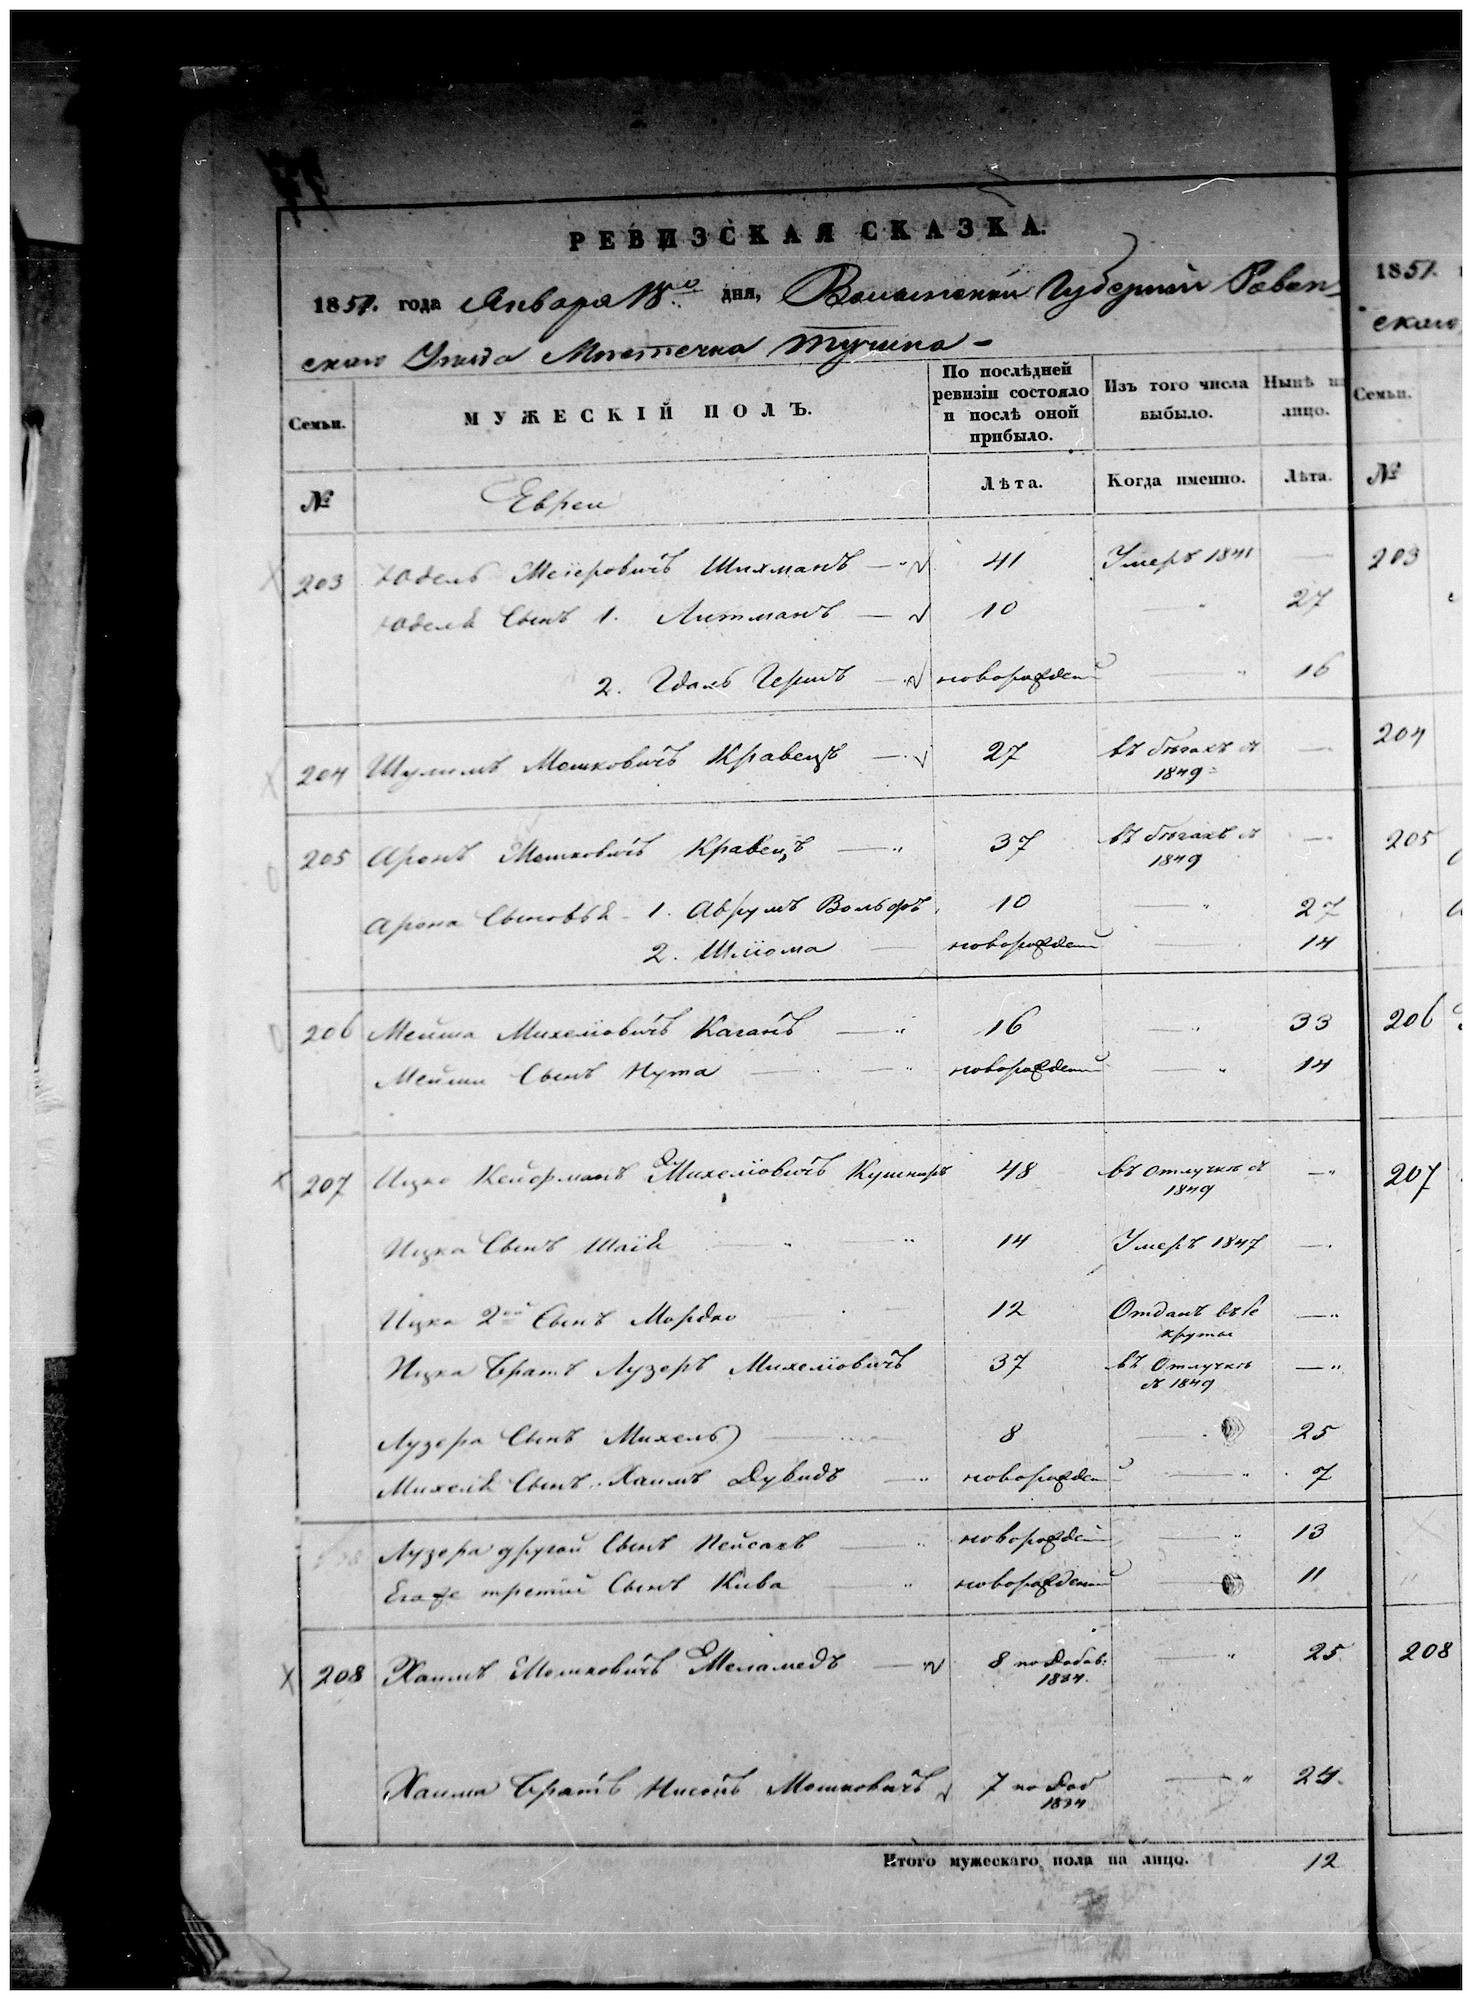 РЕВИЗСКАЯ СКАЗКА.
1851. года Января 18го дня, Волынской Губернии Ровен-
скаго Уезда Местечка Тучина -
Семьи. МУЖЕСКІЙ ПОЛЪ. По послѣдней ревизіи состояло и послѣ оной прибыло. Изъ того числа выбыло. Нынѣ на лицо.
№ Евреи Лѣта. Когда именно. Лѣта.
203 Юдель Меіеровичъ Шихманъ 41 Умеръ 1841 —
Юделя Сынъ 1. Литманъ 10 — 27
2. Гдаль Гершъ новорожден — 16
204 Шулимъ Мошковичъ Кравецъ 27 въ бѣгахъ съ 1849 —
205 Аронъ Мошковичъ Кравецъ 37 въ бѣгахъ съ 1849 —
Арона Сыновья 1. Аврумъ Вольфъ 10 — 27
2. Шліома новорожден — 14
206 Мейша Михеліовичъ Каганъ 16 — 33
Мейши Сынъ Нута новорожден — 14
207 Ицко Кейфманъ Михеліовичъ Кушниръ 48 въ отлучкѣ съ 1849 —
Ицка Сынъ Шаія 14 Умеръ 1847 —
Ицка 2ой Сынъ Мордко 12 Отданъ въ Рекруты —
Ицка Братъ Лузеръ Михеліовичъ 37 въ Отлучкѣ съ 1849 —
Лузера Сынъ Михель 8 — 25
Михеля Сынъ Хаимъ Дувидъ новорожден — 7
Лузера другой Сынъ Пейсахъ новорожден — 13
Его же третій Сынъ Кива новорожденый — 11
208 Хаимъ Мошковичъ Меламедъ 8 по добав: 1834. — 25
Хаима Братъ Нисонъ Мошковичъ 7 по доб 1834 — 24.
Итого мужескаго пола на лицо. 12
1851.
скаго
Семьи.
№
203
204
205
206
207
208